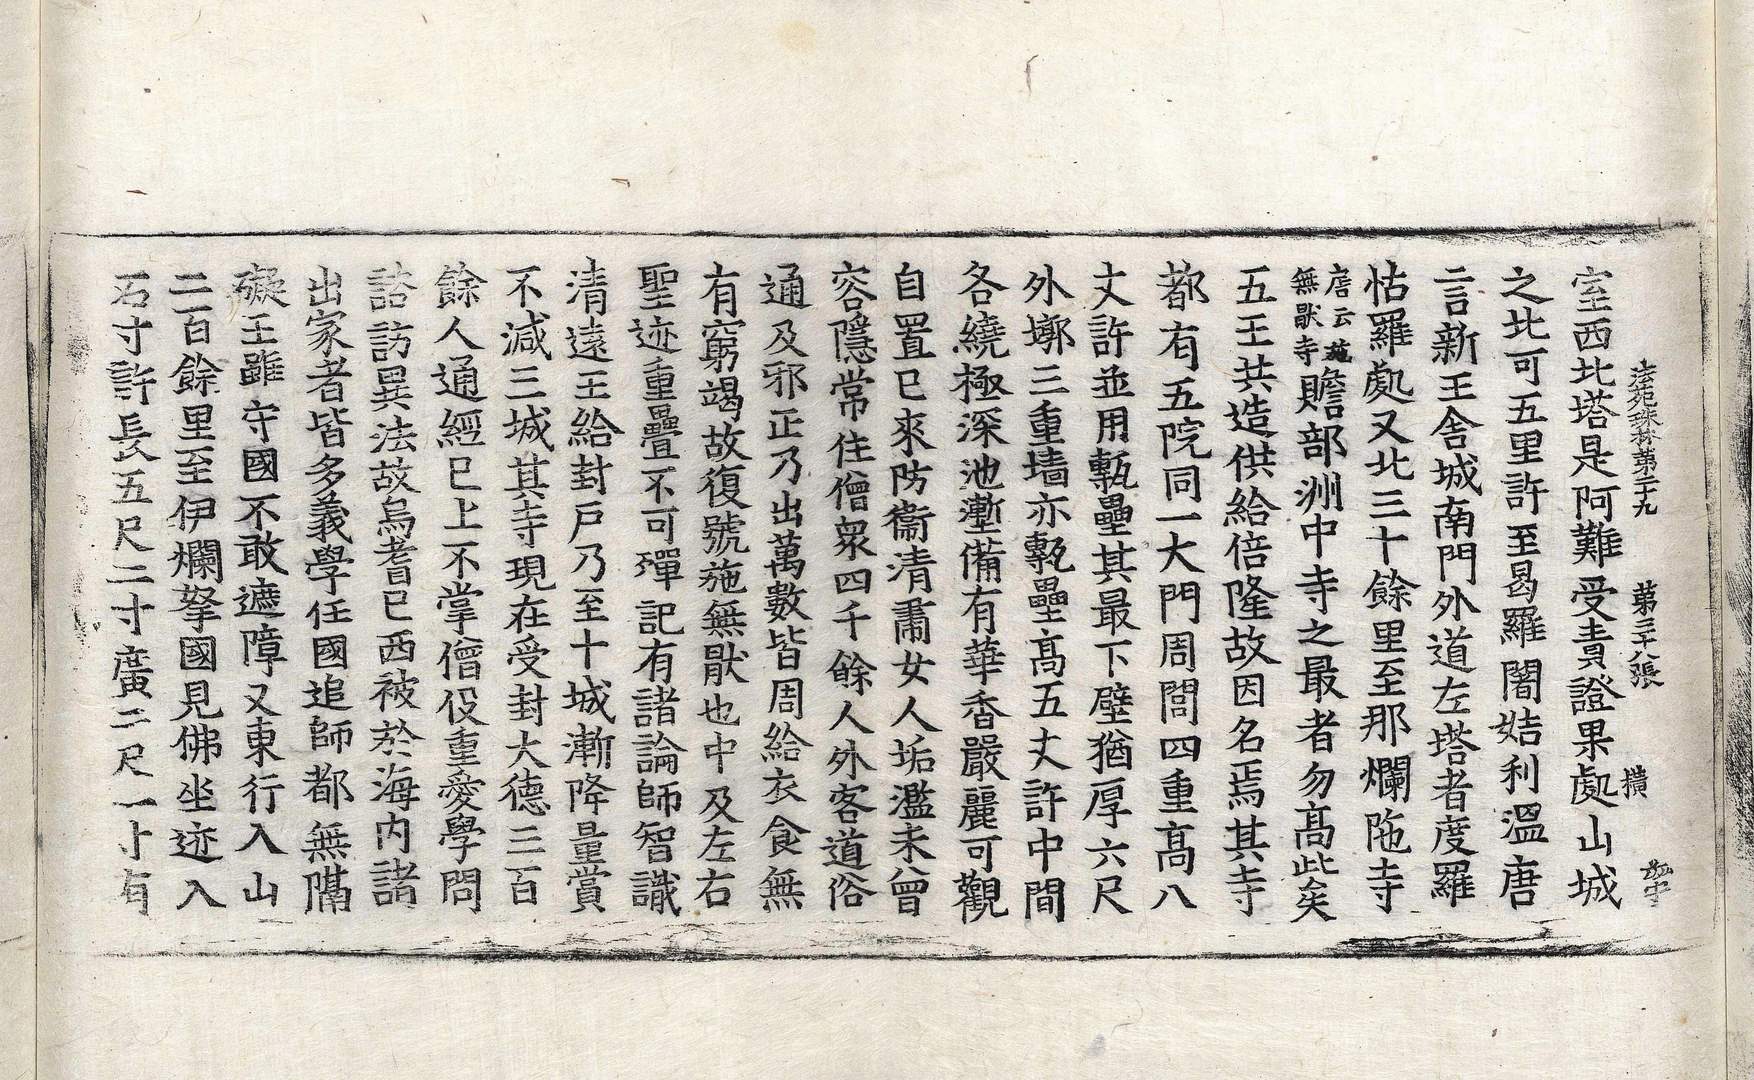 法苑珠林第二十九　第三十八張　横
室西北塔是阿難受責證果處山城
之北可五里許至曷羅闍姞利溫唐
言新王舍城南門外道左塔者度羅
怙羅處又北三十餘里至那爛陁寺
唐云施無猒寺贍部洲中寺之最者勿髙此矣
五王共造供給倍隆故因名焉其寺
都有五院同一大門周閭四重髙八
丈許並用甎壘其最下壁猶厚六尺
外墎三重墻亦甎壘髙五丈許中間
各繞極深池壍備有華香嚴麗可觀
自置已來防衞清肅女人垢濫未曾
容隱常住僧衆四千餘人外客道俗
通及邪正乃出萬數皆周給衣食無
有窮竭故復號施無猒也中及左右
聖迹重疊不可殫記有諸論師智識
清遠王給封戶乃至十城漸降量賞
不減三城其寺現在受封大德三百
餘人通經已上不掌僧役重愛學問
諮訪異法故烏耆已西被於海內諸
出家者皆多義學任國追師都無隔
礙王雖守國不敢遮障又東行入山
二百餘里至伊爛拏國見佛坐迹入
石寸許長五尺二寸廣二尺一寸有